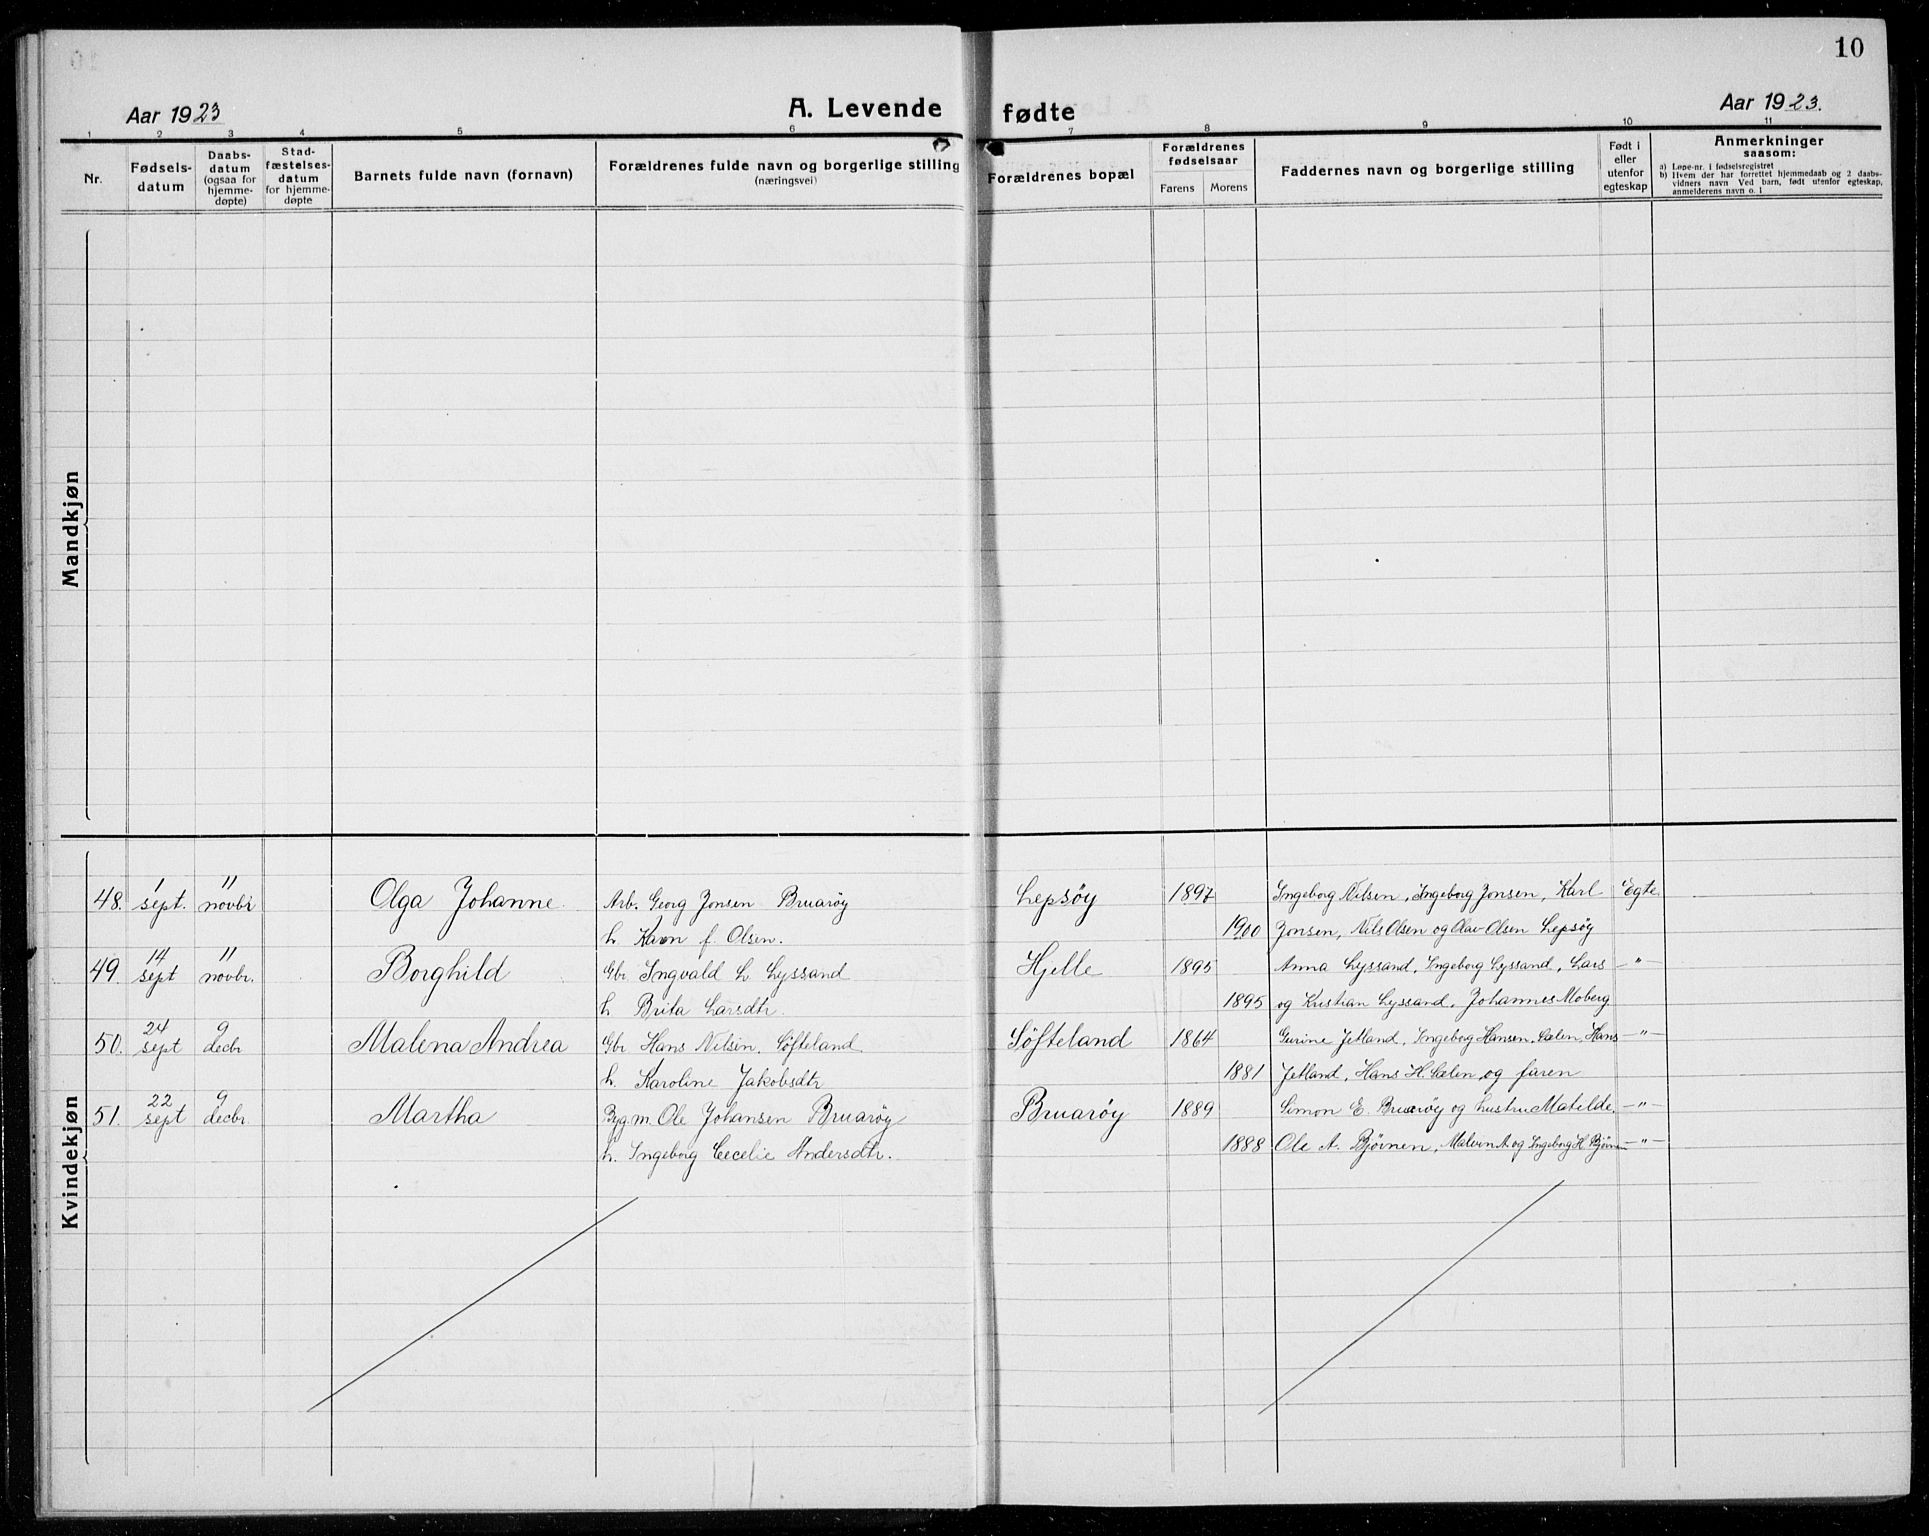 10
Aar 1923
A. Levende fødte
Aar 1923.
1 2 3 4 5 6 7 8 9 10 11
Nr.
Fødsels-
datum
Daabs-
datum
(ogsaa for
hjemme-
døpte)
Stad-
fæstelses-
datum
for hjemme-
døpte
Barnets fulde navn (fornavn)
Forældrenes fulde navn og borgerlige stilling
(næringsvei)
Forældrenes bopæl
Forældrenes
fødselsaar
Farens Morens
Faddernes navn og borgerlige stilling
Født i
eller
utenfor
egteskap
Anmerkninger
saasom:
a) Løpe-nr. i fødselsregistret
b) Hvem der har forrettet hjemmedaab og 2 daabs-
vidners navn Ved barn, født utenfor egteskap,
anmelderens navn o. l
Mandkjøn
Kvindekjøn
1 11
48. sept. novbr Olga Johanne. Arb. Georg Jonsen Bruarøy Lepsøy 1897 Ingeborg Nilsen, Ingeborg Jonsen, Karl Egte
h. Karen f. Olsen. 1900 Jonsen, Nils Olsen og Olav Olsen Lepsøy
14 11
49. sept novbr. Borghild Gbr Ingvald L. Lyssand Hjelle 1895 Anna Lyssand, Ingeborg Lyssand, Lars -"-
h. Brita Larsdtr. 1895 og Kristian Lyssand, Johannes Moberg
24 9
50. sept decbr Malena Andrea Gbr Hans Nilsen. Søfteland Søfteland 1864 Gurine Jetland, Ingeborg Hansen. Sælen, Hans -"-
h. Karoline Jakobsdtr 1881 Jetland, Hans H. Sælen, og faren
22 9
51. sept decbr. Martha Byg.m. Ole Johansen Bruarøy Bruarøy 1889 Simon E. Bruarøy og hustru Matilde, -"-
h. Ingeborg Cecelie Andersdtr. 1888 Ole A. Bjørnen, Malvin A. og Ingeborg H. Bjørnen -"-